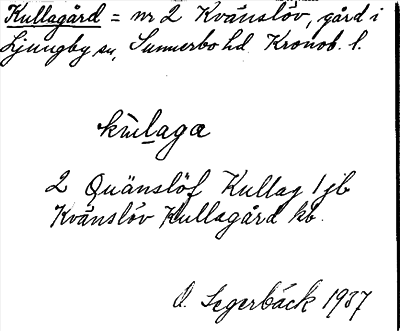 Kullagård = nr 2 Kvänslöv, gård i
Ljungby sn, Sunnerbo hd. Kronob. l.
kullaga
2 Quänslöf Kullag 1 jb
Kvänslöv Kullagård kb.
O. Segerbäck 1937